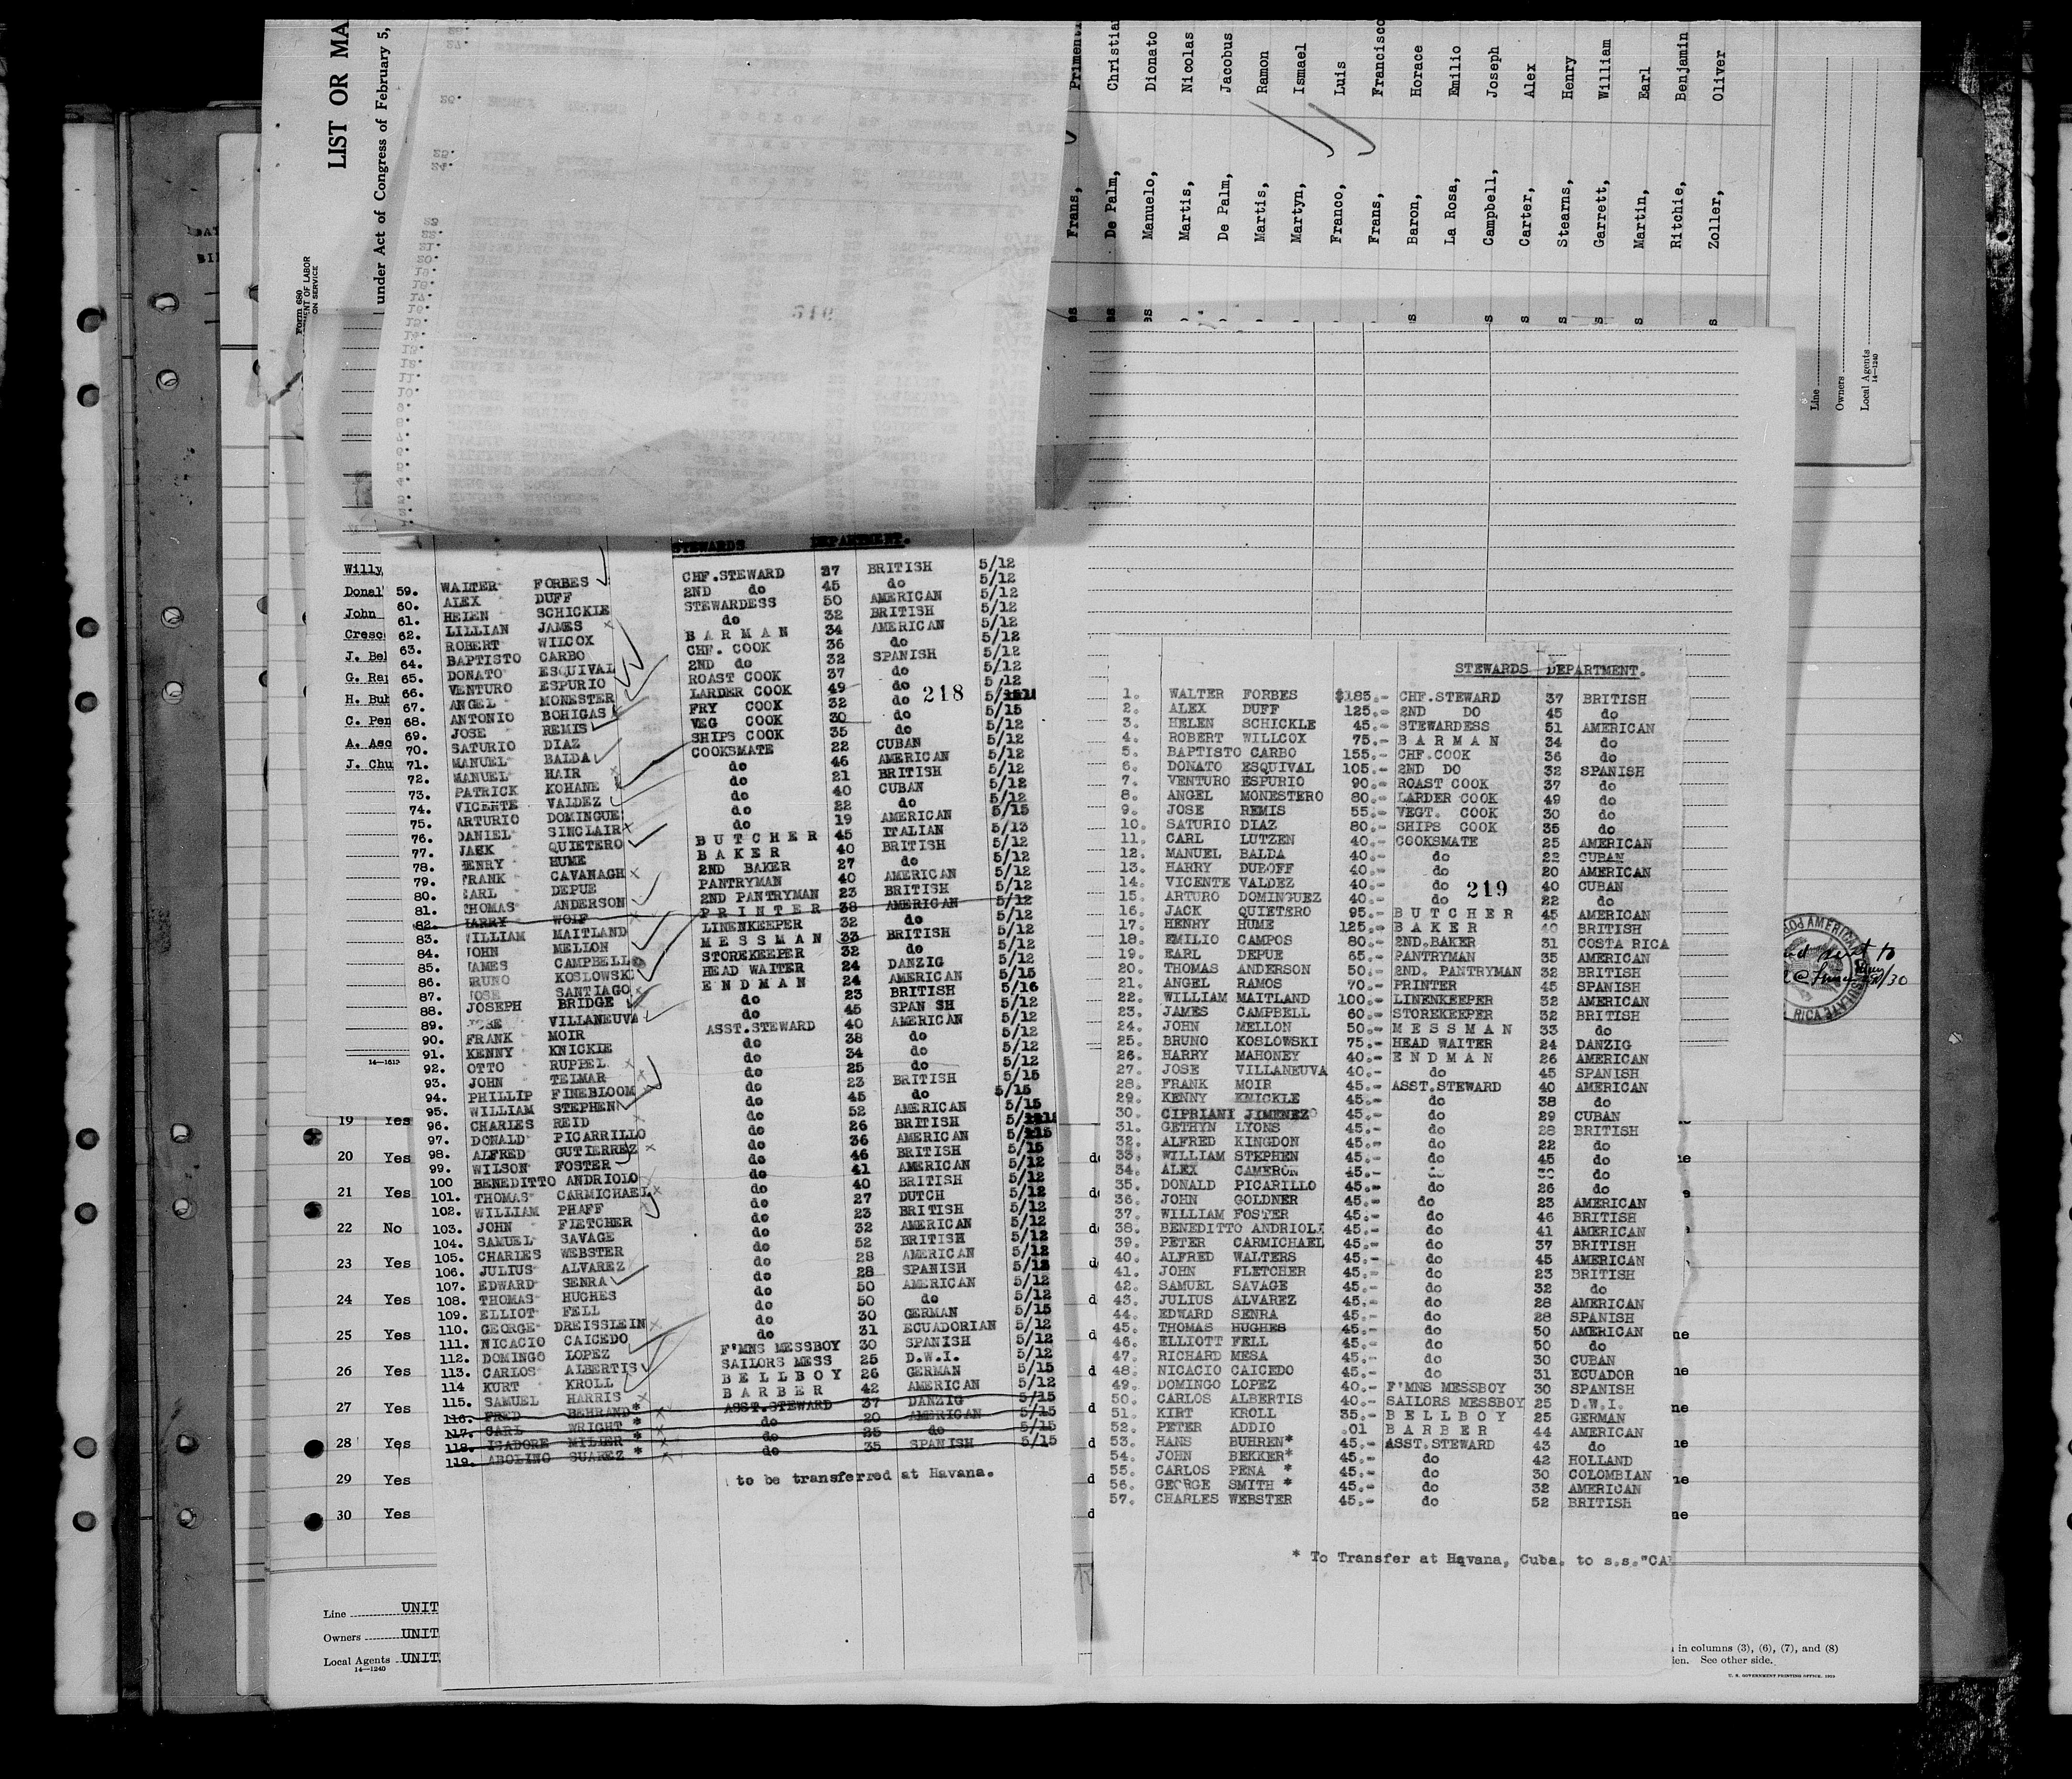 LIST OR MA
under Act of Congress of February 5,
Form 680
ON SERVICE
Frans,
De Palm, Christia
Manuelo, Dionato
Martis, Nicolas
De Palm, Jacobus
Martis, Ramon
Martyn, Ismael
Franco, Luis
Frans, Francisco
Baron, Horace
La Rosa, Emilio
Campbell, Joseph
Carter, Alex
Stearns, Henry
Garrett, William
Martin, Earl
Ritchie, Benjamin
Zoller, Oliver
Line
Owners
Local Agents
14—1240
Willy
Donal
John
Cresc
J. Bel
G. Ra
H. Buh
C. Pen
A. Aso
J. Chu
14—1613
STEWARDS DEPARTMENT.
59. WALTER FORBES CHF.STEWARD 37 BRITISH 5/12
60. ALEX DUFF 2ND do 45 do 5/12
61. HELEN SCHICKLE STEWARDESS 50 AMERICAN 5/12
62. LILLIAN JAMES do 32 BRITISH 5/12
63. ROBERT WILCOX BARMAN 34 AMERICAN 5/12
64. BAPTISTO CARBO CHF. COOK 36 do 5/12
65. DONATO ESQUIVAL 2ND do 32 SPANISH 5/12
66. VENTURO ESPURIO ROAST COOK 37 do 5/12
67. ANGEL MONESTER LARDER COOK 49 do 5/12
68. ANTONIO BOHIGAS FRY COOK 32 do
69. JOSE REMIS VEG COOK 30 do 5/15
70. SATURIO DIAZ SHIPS COOK 35 do 5/12
71. MANUEL BALDA COOKSMATE 22 CUBAN 5/12
72. MANUEL HAIR do 46 AMERICAN 5/12
73. PATRICK KOHANE do 21 BRITISH 5/12
74. VICENTE VALDEZ do 40 CUBAN 5/12
75. ARTURIO DOMINGUE do 22 do 5/12
76. DANIEL SINCLAIR do 19 AMERICAN 5/15
77. JACK QUIETERO BUTCHER 45 ITALIAN 5/13
78. HENRY HUME BAKER 40 BRITISH 5/12
79. FRANK CAVANAGH 2ND BAKER 27 do 5/12
80. EARL DEPUE PANTRYMAN 40 AMERICAN 5/12
81. THOMAS ANDERSON 2ND PANTRYMAN 23 BRITISH 5/12
82. HARRY WOLF PRINTER 38 AMERICAN 5/12
83. WILLIAM MAITLAND LINENKEEPER 32 do 5/12
84. JOHN MELLON MESSMAN 33 BRITISH 5/12
85. JAMES CAMPBELL STOREKEEPER 32 do 5/12
86. BRUNO KOSLOWSKI HEAD WAITER 24 DANZIG 5/12
87. JOSE SANTIAGO ENDMAN 24 AMERICAN 5/15
88. JOSEPH BRIDGE do 23 BRITISH 5/16
89. JOSE VILLANEUVA do 45 SPAN SH 5/12
90. FRANK MOIR ASST.STEWARD 40 AMERICAN 5/12
91. KENNY KNICKIE do 38 do 5/12
92. OTTO RUPPEL do 34 do 5/12
93. JOHN TELMAR do 25 do 5/12
94. PHILLIP FINEBLOOM do 23 BRITISH 5/15
95. WILLIAM STEPHEN do 45 do 5/15
96. CHARLES REID do 52 AMERICAN 5/15
97. DONALD PICARRILLO do 26 BRITISH
98. ALFRED GUTIERREZ do 36 AMERICAN
99. WILSON FOSTER do 46 BRITISH 5/15
100 BENEDITTO ANDRIOLO do 41 AMERICAN 5/12
101. THOMAS CARMICHAEL do 40 BRITISH 5/12
102. WILLIAM PHAFF do 27 DUTCH 5/12
103. JOHN FLETCHER do 23 BRITISH 5/12
104. SAMUEL SAVAGE do 32 AMERICAN 5/12
105. CHARLES WEBSTER do 52 BRITISH 5/12
106. JULIUS ALVAREZ do 28 AMERICAN 5/12
107. EDWARD SENRA do 28 SPANISH 5/12
108. THOMAS HUGHES do 50 AMERICAN 5/12
109. ELLIOT FELL do 50 do 5/12
110. GEORGE DREISSLEIN do 30 GERMAN 5/15
111. NICACIO CAICEDO do 31 ECUADORIAN 5/12
112. DOMINGO LOPEZ F'MNS MESSBOY 30 SPANISH 5/12
113. CARLOS ALBERTIS SAILORS MESS 25 D.W.I. 5/12
114 KURT KROLL BELLBOY 26 GERMAN 5/15
115. SAMUEL HARRIS BARBER 42 AMERICAN 5/12
116. FRED BEHRAND* ASST.STEWARD 37 DANZIG 5/15
117. CARL WRIGHT * do 20 AMERICAN 5/15
118. ISADORE MILLER * do 25 do 5/15
119. ABOLINO SUAREZ * do 35 SPANISH 5/15
to be transferred at Havana.
218
STEWARDS DEPARTMENT.
1. WALTER FORBES $185.- CHF.STEWARD 37 BRITISH
2. ALEX DUFF 125.- 2ND DO 45 do
3. HELEN SCHICKLE 45.- STEWARDESS 51 AMERICAN
4. ROBERT WILLCOX 75.- BARMAN 34 do
5. BAPTISTO CARBO 155.- CHF.COOK 36 do
6. DONATO ESQUIVAL 105.- 2ND DO 32 SPANISH
7. VENTURO ESPURIO 90.- ROAST COOK 37 do
8. ANGEL MONESTERO 80.- LARDER COOK 49 do
9. JOSE REMIS 55.- VEGT. COOK 30 do
10. SATURIO DIAZ 80.- SHIPS COOK 35 do
11. CARL LUTZEN 40.- COOKSMATE 25 AMERICAN
12. MANUEL BALDA 40.- do 22 CUBAN
13. HARRY DUBOFF 40.- do 20 AMERICAN
14. VICENTE VALDEZ 40.- do 40 CUBAN
15. ARTURO DOMINGUEZ 40.- do 22 do
16. JACK QUIETERO 95.- BUTCHER 45 AMERICAN
17. HENRY HUME 125.- BAKER 40 BRITISH
18. EMILIO CAMPOS 80.- 2ND.BAKER 31 COSTA RICA
19. EARL DEPUE 65.- PANTRYMAN 35 AMERICAN
20. THOMAS ANDERSON 50.- 2ND. PANTRYMAN 32 BRITISH
21. ANGEL RAMOS 70.- PRINTER 45 SPANISH
22. WILLIAM MAITLAND 100.- LINENKEEPER 32 AMERICAN
23. JAMES CAMPBELL 60.- STOREKEEPER 32 BRITISH
24. JOHN MELLON 50.- MESSMAN 33 do
25. BRUNO KOSLOWSKI 75.- HEAD WAITER 24 DANZIG
26. HARRY MAHONEY 40.- ENDMAN 26 AMERICAN
27. JOSE VILLANEUVA 40.- do 45 SPANISH
28. FRANK MOIR 45.- ASST.STEWARD 40 AMERICAN
29. KENNY KNICKLE 45.- do 38 do
30. CIPRIANI JIMENEZ 45.- do 29 CUBAN
31. GETHYN LYONS 45.- do 28 BRITISH
32. ALFRED KINGDON 45.- do 22 do
33. WILLIAM STEPHEN 45.- do 45 do
34. ALEX CAMERON 45.- do
35. DONALD PICARILLO 45.- do 26 do
36. JOHN GOLDNER 45.- do 23 AMERICAN
37. WILLIAM FOSTER 45.- do 46 BRITISH
38. BENEDITTO ANDRIOLI 45.- do 41 AMERICAN
39. PETER CARMICHAEL 45.- do 37 BRITISH
40. ALFRED WALTERS 45.- do 45 AMERICAN
41. JOHN FLETCHER 45.- do 23 BRITISH
42. SAMUEL SAVAGE 45.- do 32 do
43. JULIUS ALVAREZ 45.- do 28 AMERICAN
44. EDWARD SENRA 45.- do 28 SPANISH
45. THOMAS HUGHES 45.- do 50 AMERICAN
46. ELLIOTT FELL 45.- do 50 do
47. RICHARD MESA 45.- do 30 CUBAN
48. NICACIO CAICEDO 45.- do 31 ECUADOR
49. DOMINGO LOPEZ 40.- F'MNS MESSBOY 30 SPANISH
50. CARLOS ALBERTIS 40.- SAILORS MESSBOY 25 D.W.I.
51. KIRT KROLL 35.- BELLBOY 25 GERMAN
52. PETER ADDIO .01 BARBER 44 AMERICAN
53. HANS BUHREN* 45.- ASST.STEWARD 43 do
54. JOHN BEKKER* 45.- do 42 HOLLAND
55. CARLOS PENA * 45.- do 30 COLOMBIAN
56. GEORGE SMITH * 45.- do 32 AMERICAN
57. CHARLES WEBSTER 45.- do 52 BRITISH
* To Transfer at Havana, Cuba. to s.s."CA
219
19 Yes
20 Yes
21 Yes
22 No
23 Yes
24 Yes
25 Yes
26 Yes
27 Yes
28 Yes
29 Yes
30 Yes
Line UNIT
Owners UNIT
Local Agents UNIT
14—1240
in columns (3), (6), (7), and (8)
See other side.
U. S. GOVERNMENT PRINTING OFFICE